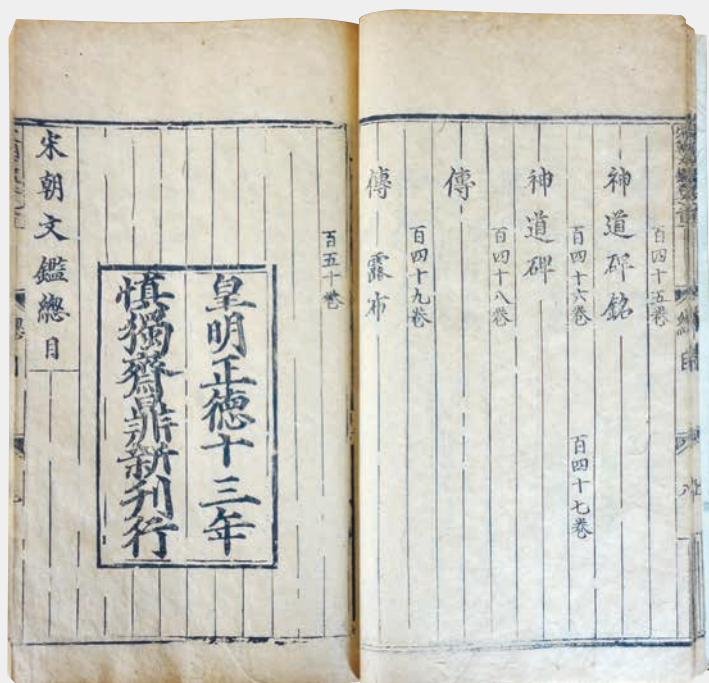 百四十五卷
神道碑銘
百四十六卷 百四十七卷
神道碑
百四十八卷
傳
百四十九卷
傳 露布
百五十卷
皇明正德十三年
慎獨齋鼎新刊行
宋朝文鑑總目